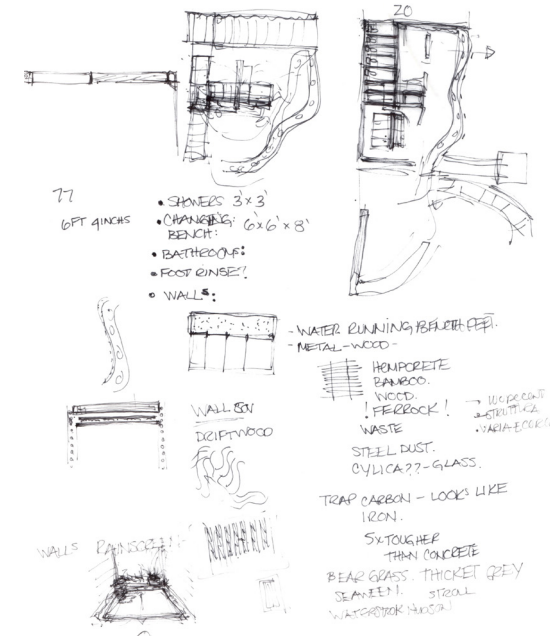 20
77
6FT 4INCHS
• SHOWERS 3'x3'
• CHANGING: 6'x6'x8'
BENCH:
• BATHROOMS:
• FOOT RINSE?!
• WALLS:
- WATER RUNNING BENCH FEET.
- METAL - WOOD -
HEMPCRETE
BAMBOO.
WOOD.
! FERROCK !
WASTE
STEEL DUST.
CYLICA?? - GLASS.
TRAP CARBON - LOOKS LIKE
IRON.
5x TOUGHER
THAN CONCRETE
BEAR GRASS. THICKET GREY
SEAWEEN. STROLL
WALL
DRIFTWOOD
WALLS RAINSCREEN